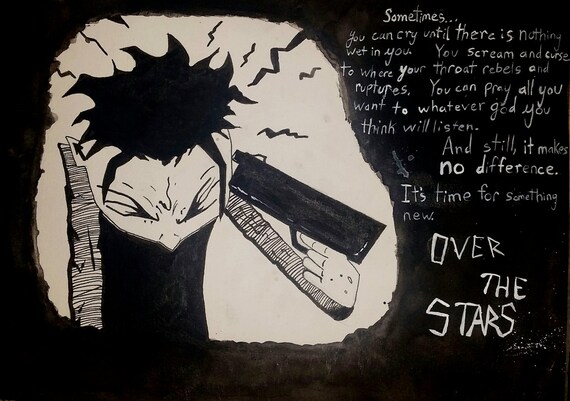 Sometimes...
You can cry until there is nothing
wet in you. You scream and curse
to where your throat rebels and
ruptures. You can pray all you
want to whatever god you
think will listen.
And still, it makes
no difference.
It's time for something
new.
OVER
THE
STARS